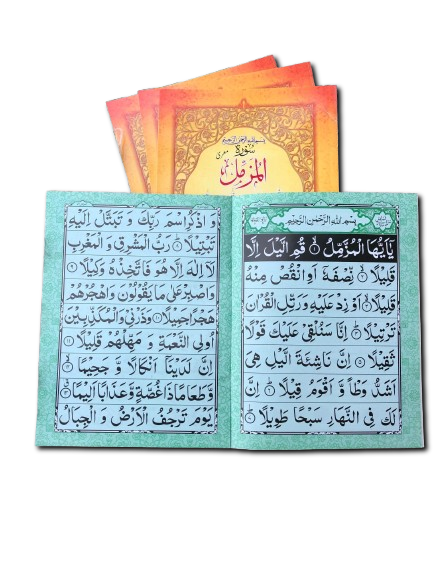 بسم الله الرحمن الرحيم
سورة
المزمل
بِسْمِ اللهِ الرَّحْمٰنِ الرَّحِيْمِ
يٰٓاَيُّهَا الْمُزَّمِّلُ ۝١ قُمِ الَّيْلَ اِلَّا
قَلِيْلًا ۝٢ نِّصْفَهٗٓ اَوِ انْقُصْ مِنْهُ
قَلِيْلًا ۝٣ اَوْ زِدْ عَلَيْهِ وَرَتِّلِ الْقُرْاٰنَ
تَرْتِيْلًا ۝٤ اِنَّا سَنُلْقِيْ عَلَيْكَ قَوْلًا
ثَقِيْلًا ۝٥ اِنَّ نَاشِئَةَ الَّيْلِ هِيَ
اَشَدُّ وَطْاً وَّ اَقْوَمُ قِيْلًا ۝٦ اِنَّ
لَكَ فِي النَّهَارِ سَبْحًا طَوِيْلًا ۝٧
وَ اذْكُرِ اسْمَ رَبِّكَ وَ تَبَتَّلْ اِلَيْهِ
تَبْتِيْلًا ۝٨ رَبُّ الْمَشْرِقِ وَ الْمَغْرِبِ
لَآ اِلٰهَ اِلَّا هُوَ فَاتَّخِذْهُ وَكِيْلًا ۝٩
وَ اصْبِرْ عَلٰى مَا يَقُوْلُوْنَ وَ اهْجُرْهُمْ
هَجْرًا جَمِيْلًا ۝١٠ وَ ذَرْنِيْ وَ الْمُكَذِّبِيْنَ
اُولِي النَّعْمَةِ وَ مَهِّلْهُمْ قَلِيْلًا ۝١١
اِنَّ لَدَيْنَآ اَنْكَالًا وَّ جَحِيْمًا ۝١٢
وَّ طَعَامًا ذَا غُصَّةٍ وَّ عَذَابًا اَلِيْمًا ۝١٣
يَوْمَ تَرْجُفُ الْاَرْضُ وَ الْجِبَالُ